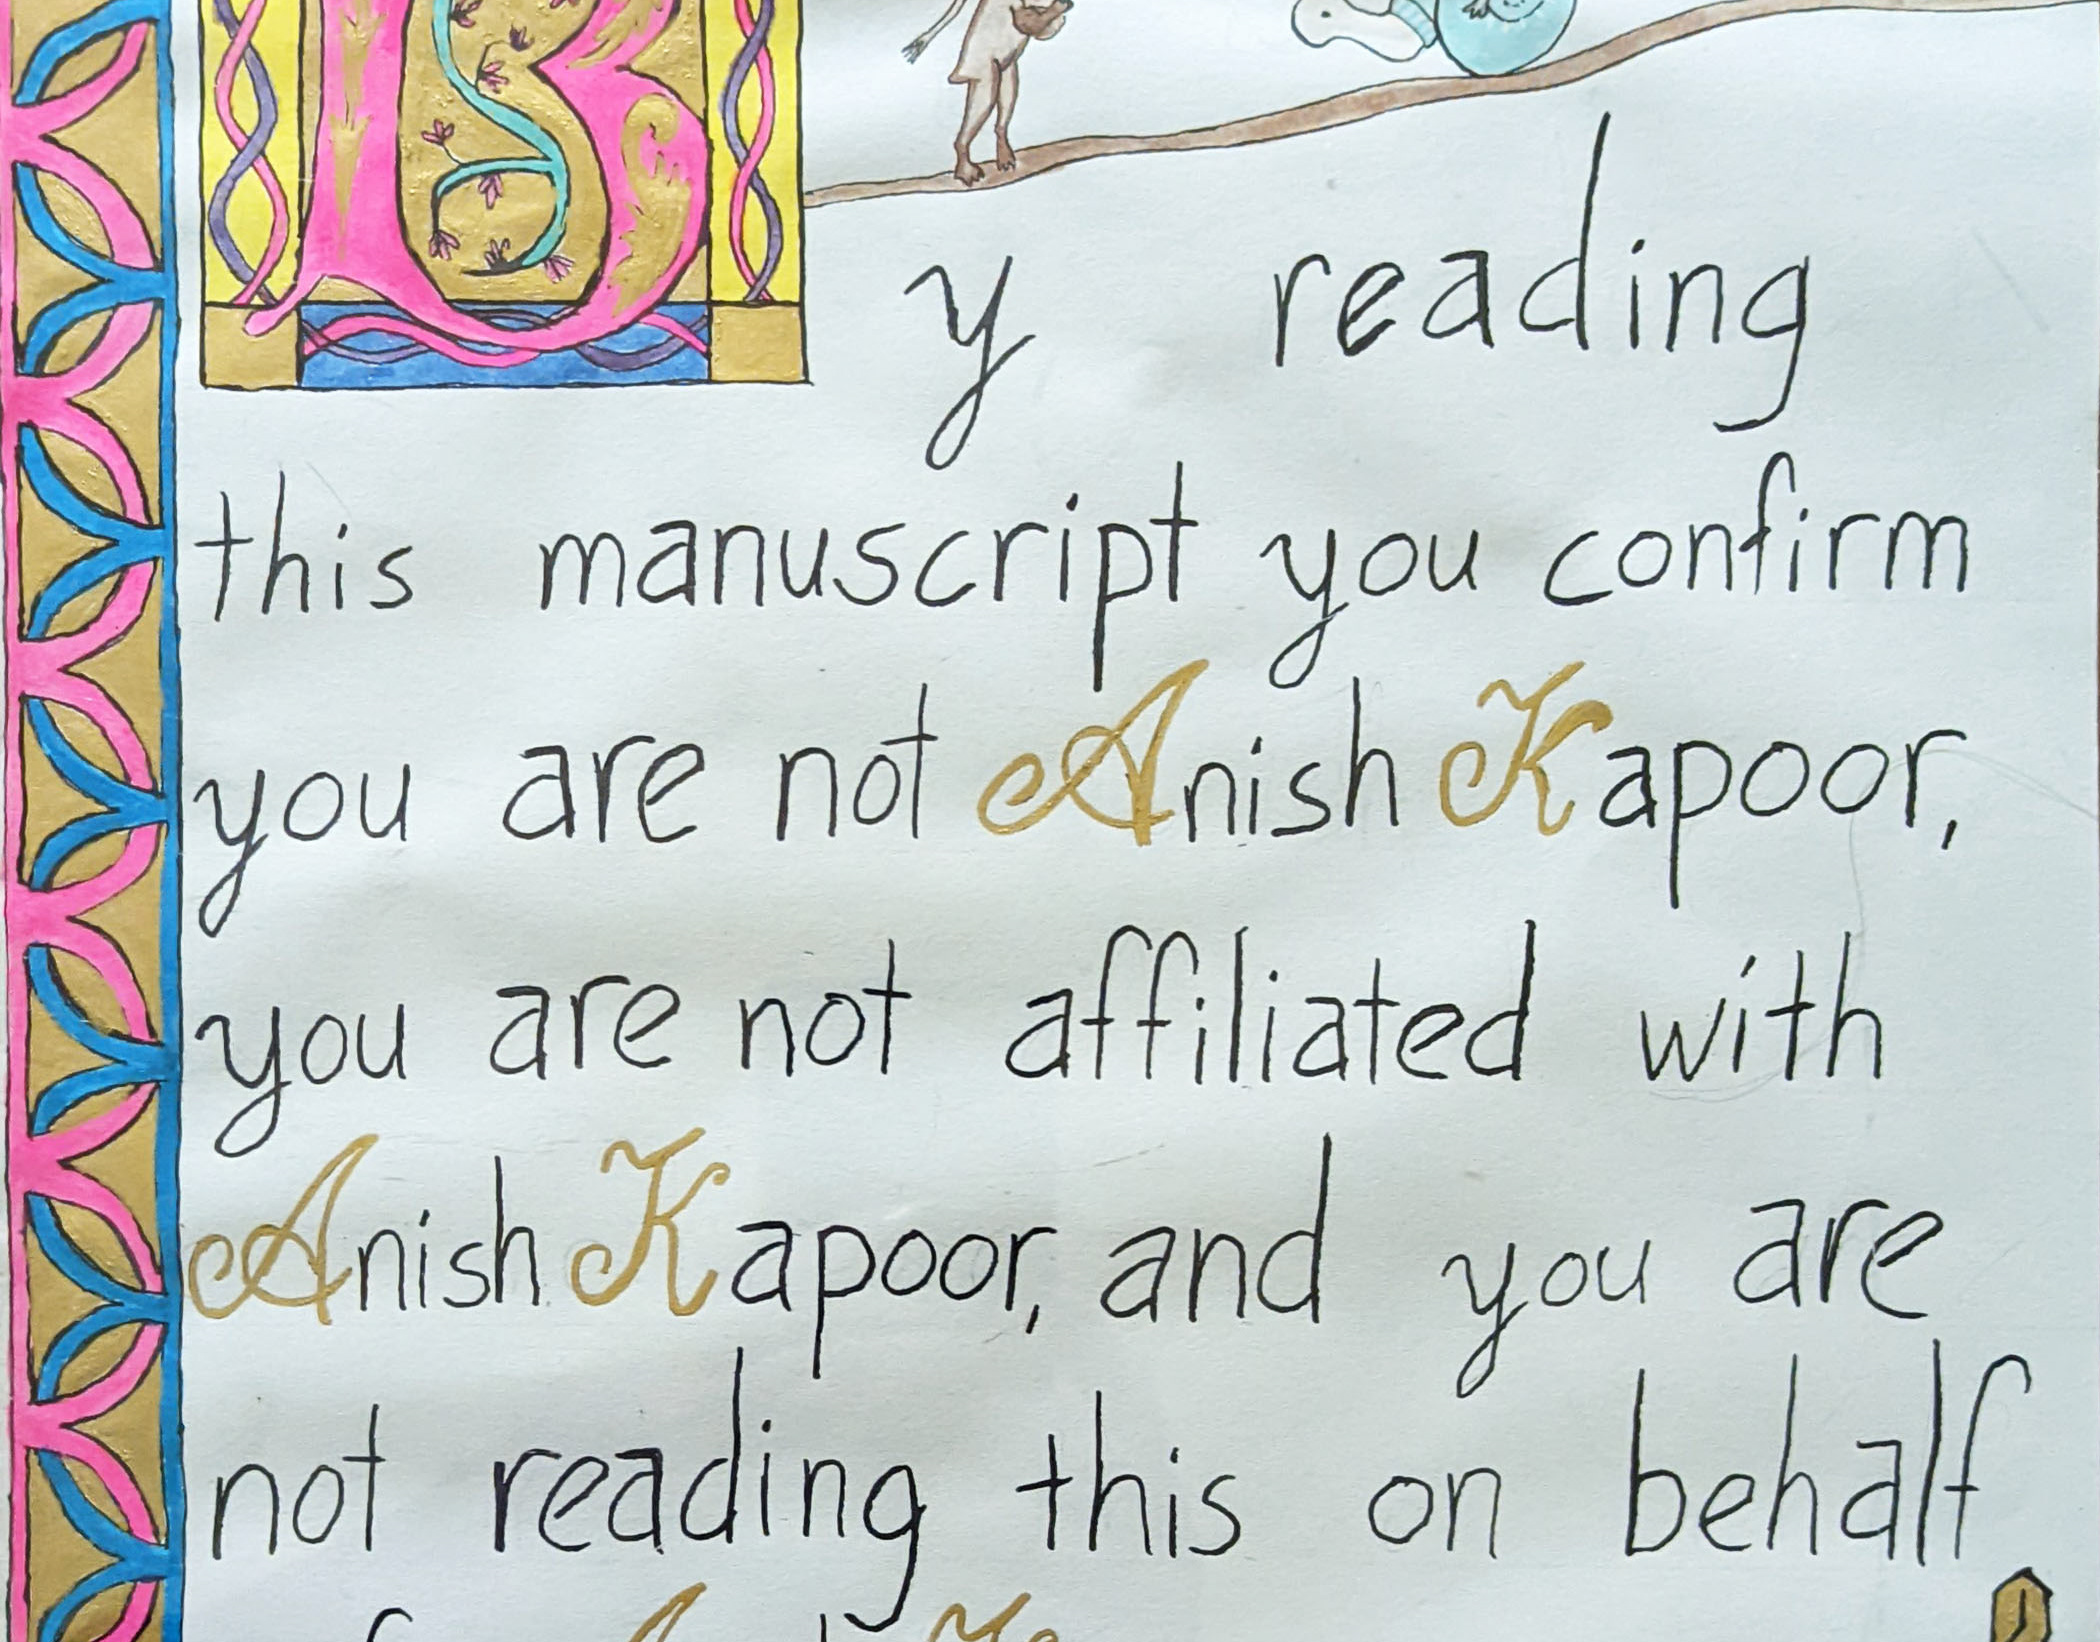 By reading
this manuscript you confirm
you are not Anish Kapoor,
you are not affiliated with
Anish Kapoor, and you are
not reading this on behalf